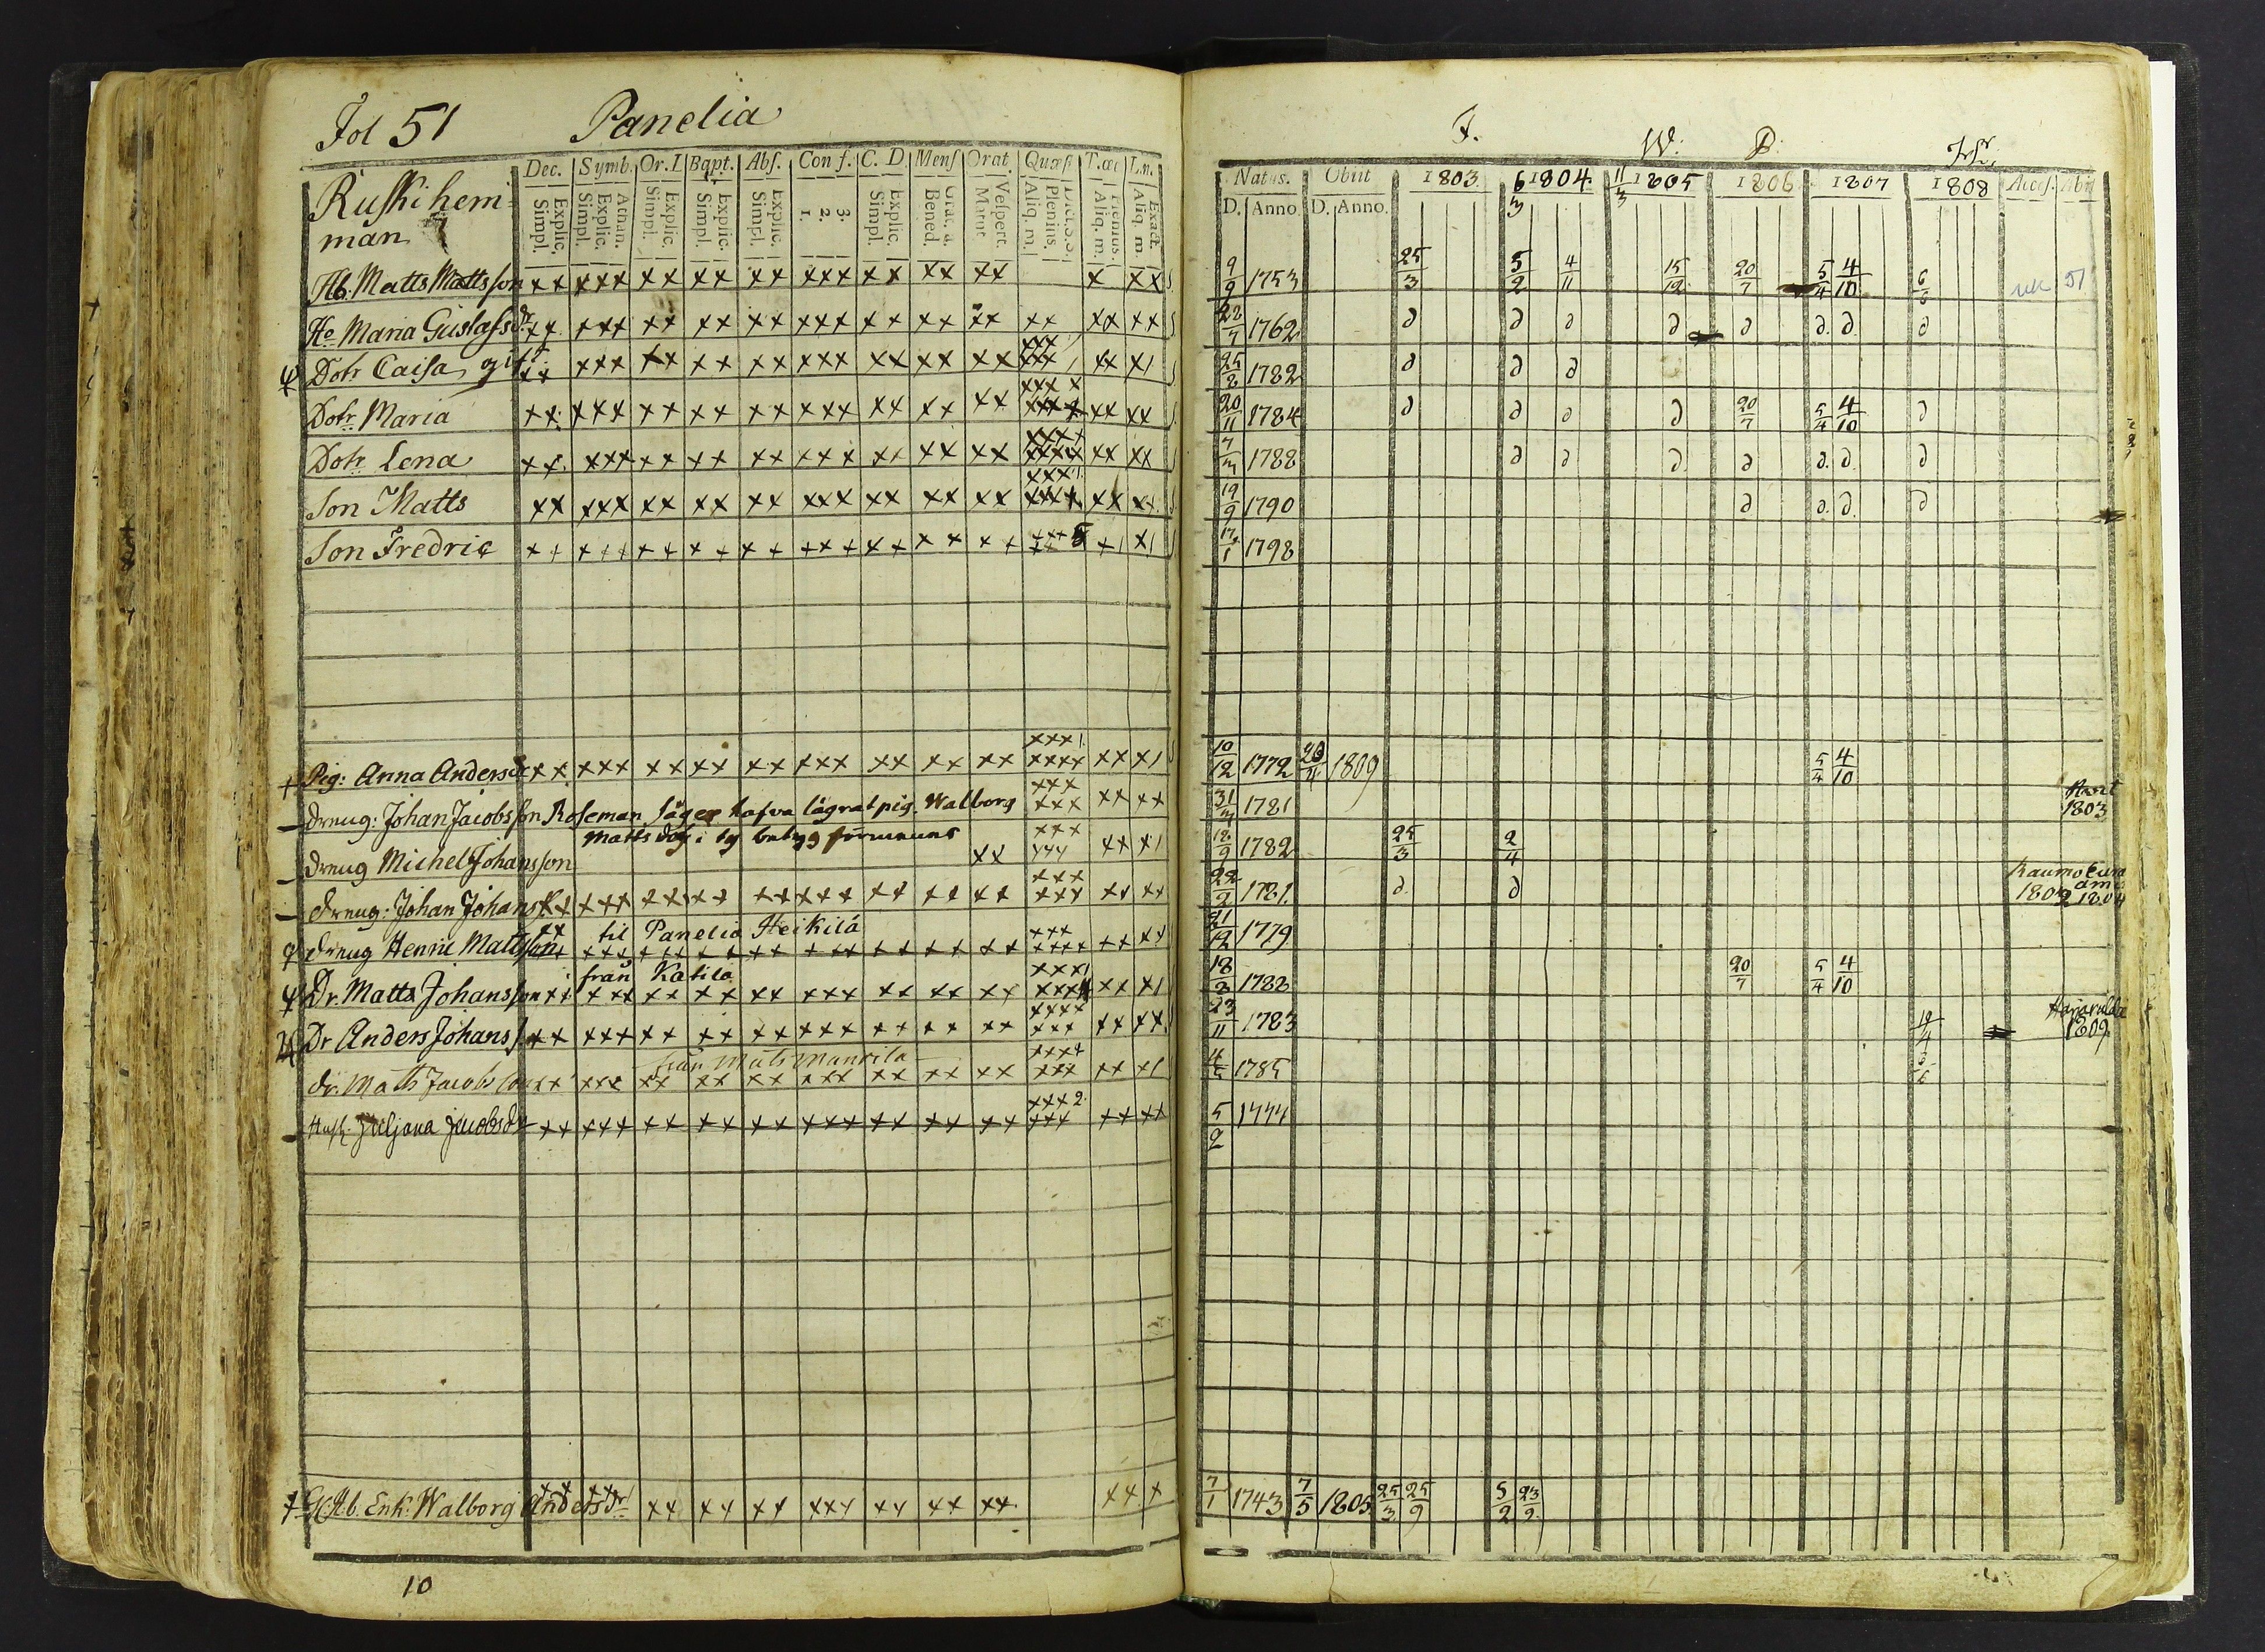 Fol 51 Panelia
Dec. Symb. Or. D Bapt. Abs. Conf. C. D. Mens Orat. Quæst T. œc L. n.
Ruski hem=
man
Explic. Simpl. Athan. Explic. Simpl. Explic. Simpl. Explic. Simpl. Explic. Simpl. 3. 2. 1. Explic. Simpl. Grat. a. Bened. Vespert. Matut. Plenius. Aliq. m. Plenius. Aliq. m. Exact. Aliq. m.
Hb. Matts Mattsson xx xxx xx xx xx xxx xx xx xx x xx
He Maria Gustafsdr xx xxx xx xx xx xxx xx xx xx xx xx xx
Dotr Caisa gift xx xxx xx xx xx xxx xx xx xx xxx xxx xx x1
Dotr Maria xx xxx xx xx xx xxx xx xx xx xxx x xx xx
Dotr Lena xx xxx xx xx xx xxx xx xx xx xxxx xxxx xx xx
Son Matts xx xxx xx xx xx xxx xx xx xx xxx1 xxxx xx xx
Son Fredric xx xxx xx xx xx xxx xx xx xx xxx 5 x1 x1
Pig: Anna Andersdr xx xxx xx xx xx xxx xx xx xx xxx1 xxxx xx x1
Dreng: Johan Jacobsson Roseman säger hafva lägrat pig. Walborg xxx xxx xx xx
Matts dotr i
Dreng Michel Johansson xx xxx xx x1
Dreng: Johan Johanss xx xxx xx xx xx xxx xx xx xx xxx xxx xx xx
til Panelia Heikilä
Dreng Henric Mattsson xx xxx xx xx xx xxx xx xx xx xxx xxxx xx xx
från Katila
Dr. Matts Johansson xx xxx xx xx xx xxx xx xx xx xxx1 xxx xx x1
Dr Anders Johanss. xx xxx xx xx xx xxx xx xx xx xxxx xxx xx xx
från Mats
dr. Mats Jacobsson xx xxx xx xx xx xxx xx xx xx xxxx xxx xx x1
Hush. Juljana Jacobsdr xx xxx xx xx xx xxx xx xx xx xxx2 xxx xx xx
G. Hb. Enk: Walborg Andersdr xx xxx xx xx xx xxx xx xx xx xx x
10
F. W: P.
Natus. Obiit 1803 1804 1805 1806 1807 1808 Acces. Abit
D. Anno D. Anno 6/3 11/3
9/9 1753 25/3 5/2 4/11 15/12 20/7 5/4 4/10 6/6 51
22/7 1762 d d d d d d. d. d
25/8 1782 d d d
20/11 1784 d d d d 20/7 5/4 4/10 d
7/3 1788 d d d d d. d. d
19/9 1790 d d. d. d
17/1 1798
10/12 1772 26/4 1809 5/4 4/10
31/3 1781 1803
18/9 1782 25/3 2/4
22/2 1781. d. d Raumo Eura
1804
21/12 1779
18/8 1788 20/7 5/4 4/10
23/11 1783 18/4 Harjavalda
1809
4/5 1785
5/2 1777
7/1 1743 7/5 1805 25/3 25/9 5/2 23/9